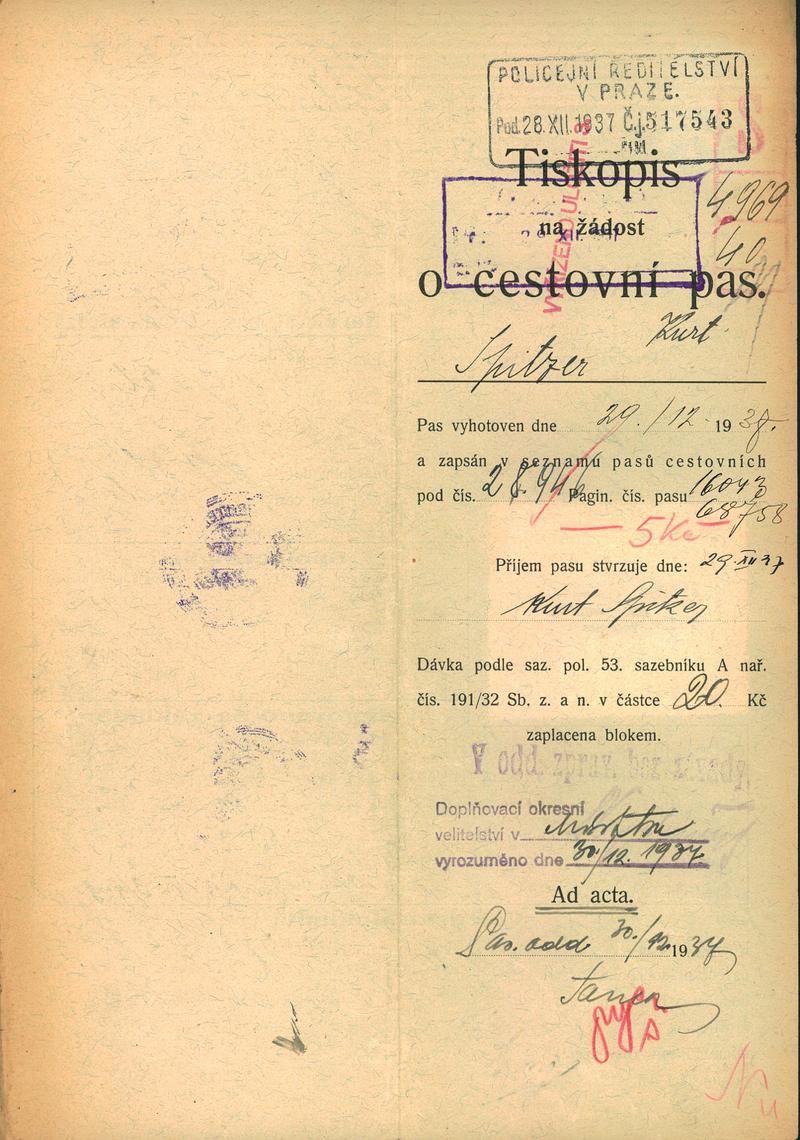 POLICEJNÍ ŘEDITELSTVÍ
V PRAZE.
Pod. 28. XII. 1937 Č.j. 517543
Tiskopis
4969
na žádost
40
o cestovní pas.
Kurt
Spitzer
Pas vyhotoven dne 29./12. 1937.
a zapsán v seznamu pasů cestovních
pod čís. 28946 Pagin. čís. pasu 16043
68758
5 Kč
Příjem pasu stvrzuje dne: 29. XII 37
Kurt Spitzer
Dávka podle saz. pol. 53. sazebníku A nař.
čís. 191/32 Sb. z. a n. v částce 20. Kč
zaplacena blokem.
V odd. zprav. bez závady
Doplňovací okresní
velitelství v
vyrozuměno dne 30/12. 1937
Ad acta.
Pas. odd 30./12. 1937